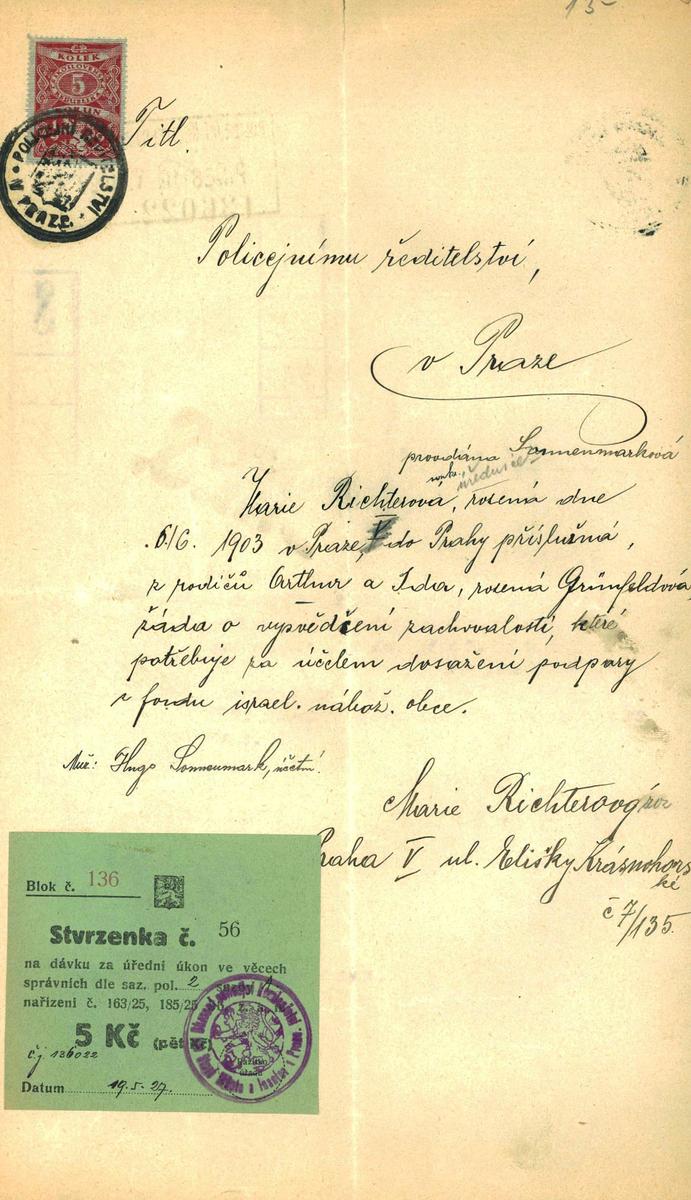 15
KOLEK
5
POLICEJNÍ ŘEDITELSTVÍ V PRAZE.
Titl.
Policejnímu ředitelství,
v Praze
provdána Sonnenmarková
úřednice
Marie Richterová, rozená dne
6/6. 1903 v Praze, do Prahy příslušná,
z rodičů Arthur a Ida, rozená Grünfeldová,
žádá o vysvědčení zachovalosti, které
potřebuje za účelem dosažení podpory
z fondu israel. nábož. obce.
Muž: Hugo Sonnenmark, účetní.
Marie Richterová
Praha V ul. Elišky Krásnohors
ké
č 7/135.
Blok č. 136
Stvrzenka č. 56
na dávku za úřední úkon ve věcech
správních dle saz. pol. 2
nařízení č. 163/25, 185/25
5 Kč (pět Kč)
čj 126022
Datum 19.5.27.